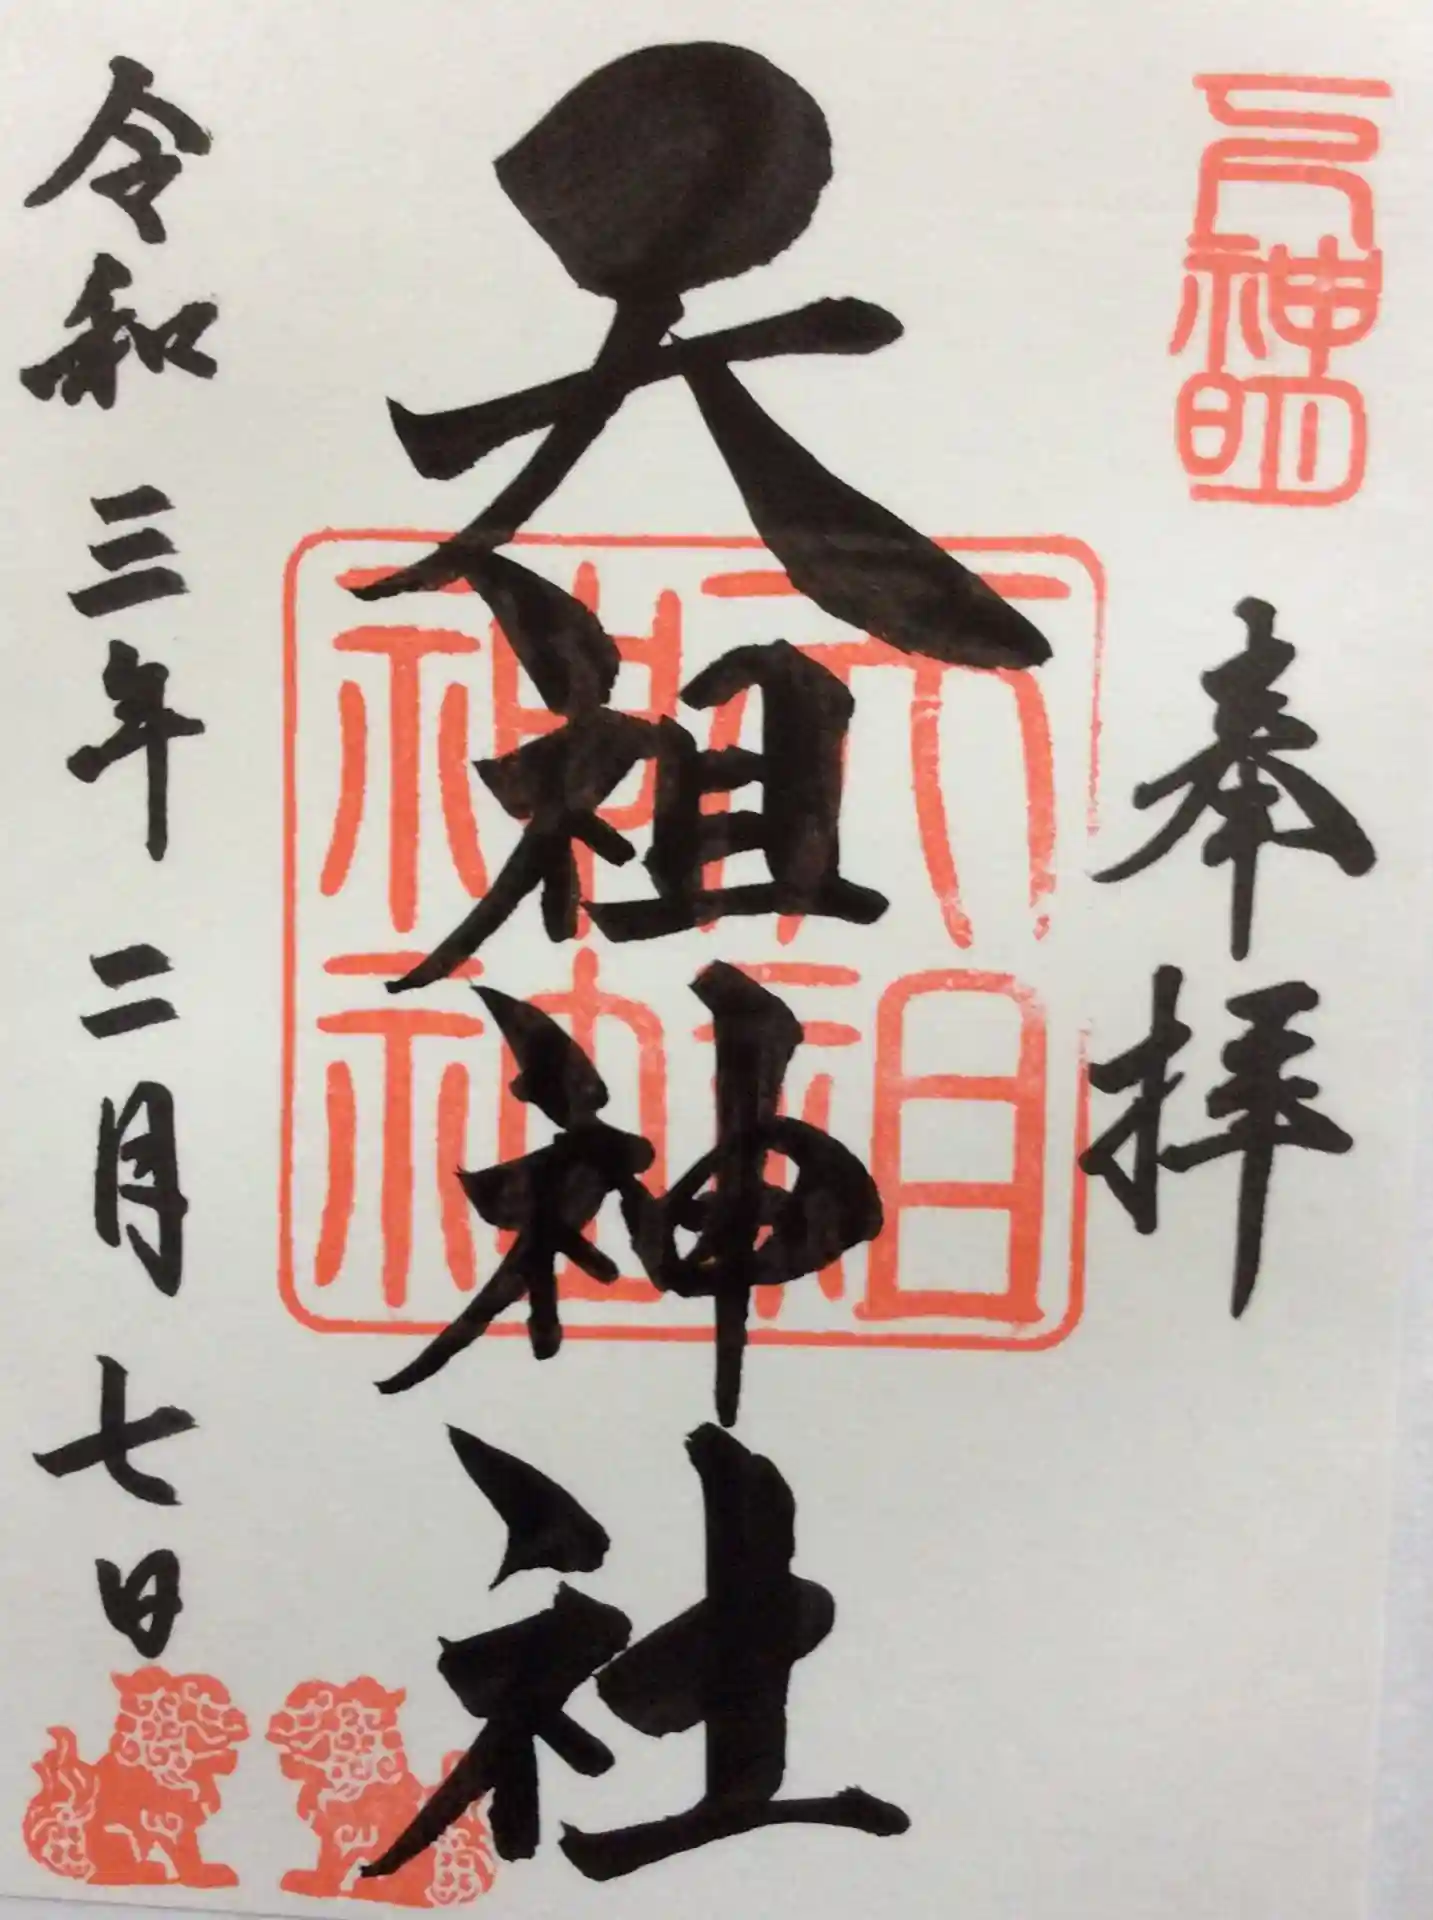 元神明
奉拝
天祖神社
天祖
神社
令和三年二月七日